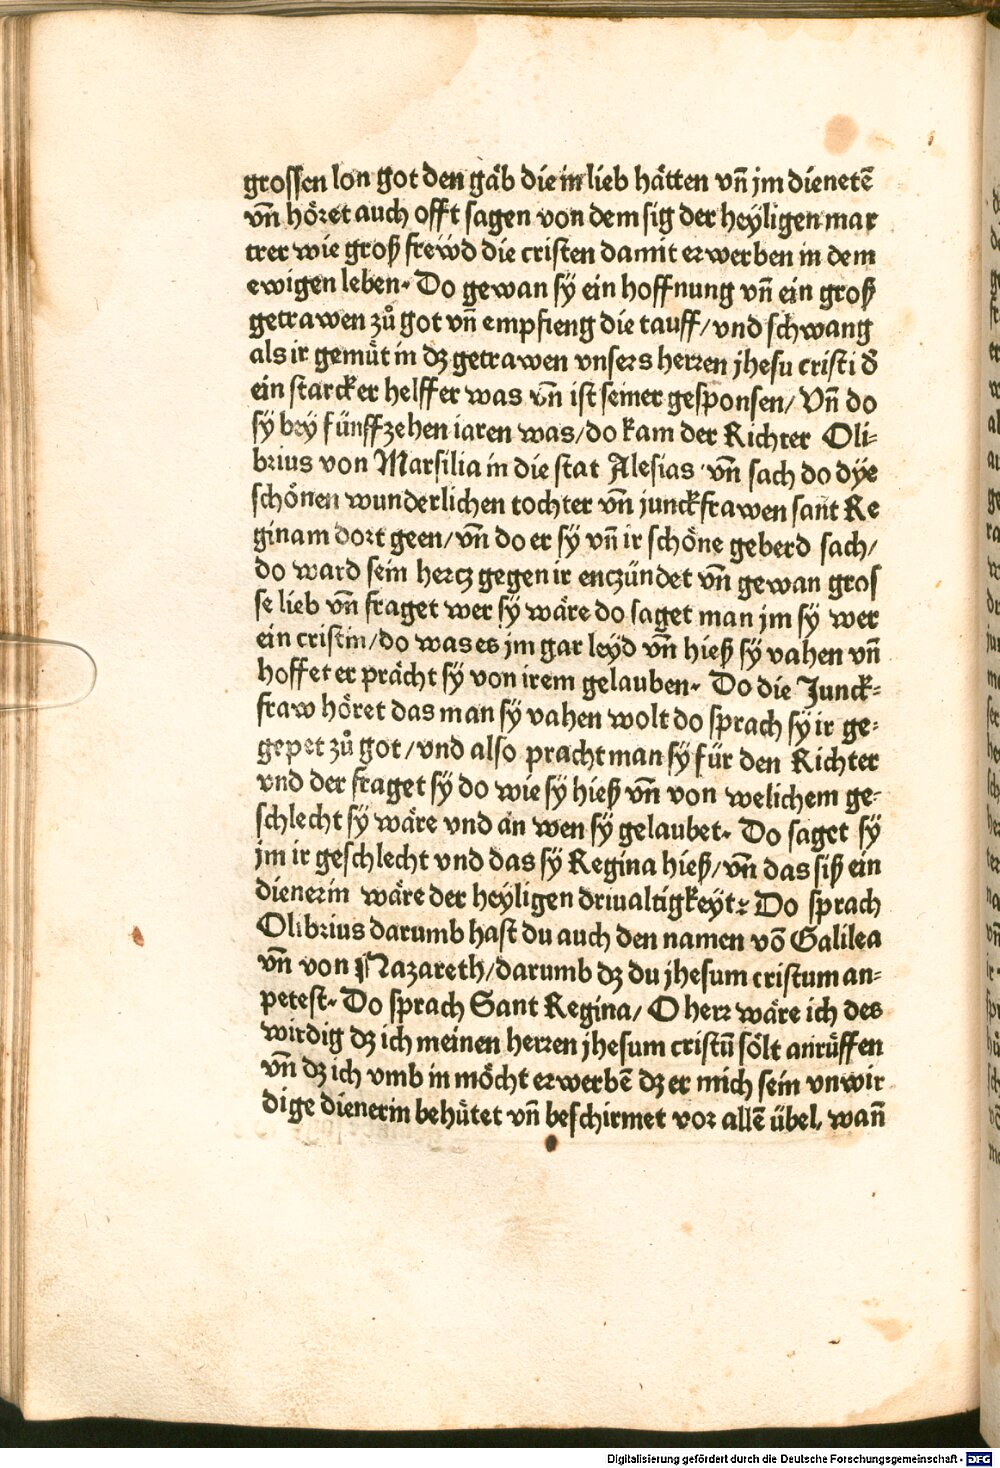 grossen lon got den gäb die in lieb hätten vn̄ jm dienetē
vn̄ höret auch offt sagen von dem sig der heyligen mar
trer wie groß frewd die cristen damit erwerben in dem
ewigen leben. Do gewan sÿ ein hoffnung vn̄ ein groß
getrawen zů got vn̄ empfieng die tauff/vnd schwang
als ir gemüt in dz getrawen vnsers herren jhesu cristi đ
ein starcker helffer was vn̄ ist seiner gesponsen/ Vn̄ do
sÿ bey fünffzehen iaren was/do kam der Richter Oli-
brius von Marsilia in die stat Alesias vn̄ sach do dÿe
schönen wunderlichen tochter vn̄ junckfrawen sant Re
ginam dort geen/vn̄ do er sÿ vn̄ ir schöne geberd sach/
do ward sein hertz gegen ir enczündet vn̄ gewan gros
se lieb vn̄ fraget wer sÿ wäre do saget man jm sÿ wer
ein cristin/do was es jm gar leyd vn̄ hieß sÿ vahen vn̄
hoffet er prächt sÿ von irem gelauben. Do die Junck-
fraw höret das man sÿ vahen wolt do sprach sÿ ir ge-
gepet zů got/vnd also pracht man sÿ für den Richter
vnd der fraget sÿ do wie sÿ hieß vn̄ von welichem ge-
schlecht sÿ wäre vnd an wen sÿ gelaubet. Do saget sÿ
jm ir geschlecht vnd das sÿ Regina hieß/vn̄ das siß ein
dienerin wäre der heyligen driualtigkeyt. Do sprach
Olibrius darumb hast du auch den namen vō Galilea
vn̄ von Nazareth/darumb dz du jhesum cristum an-
petest. Do sprach Sant Regina/ O herr wäre ich des
wirdig dz ich meinen herren jhesum cristū sölt anrüffen
vn̄ dz ich vmb in möcht erwerbē dz er mich sein vnwir
dige dienerin behütet vn̄ beschirmet vor allē übel. wan̄
Digitalisierung gefördert durch die Deutsche Forschungsgemeinschaft - DFG